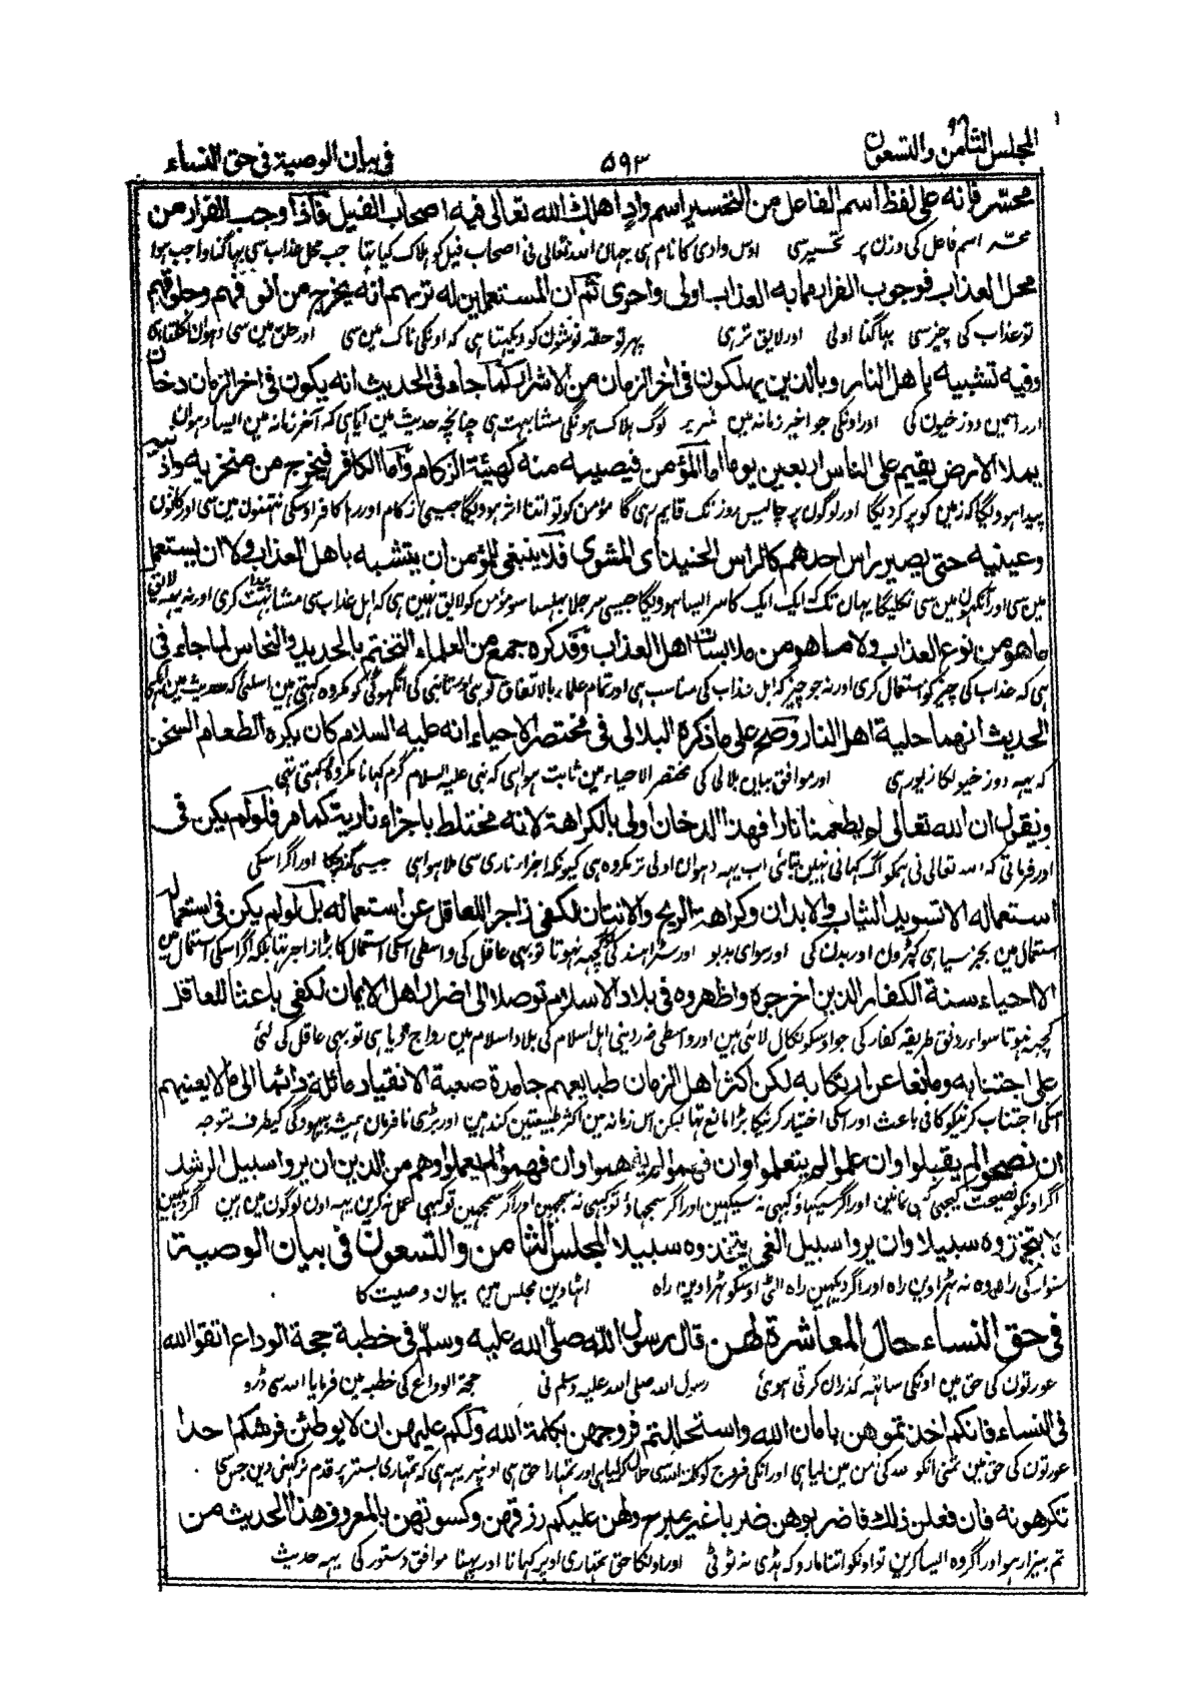 المجلس الثامن والتسعون
۵۹۳
فی بیان الوصیة فی حق النساء
محسّر فانه علی لفظ اسم الفاعل من التحسیر اسم واد اهلك الله تعالی فیه اصحاب الفیل فاذا وجب الفرار من
محسّر اسم فاعل کی وزن پر تحسیر سی اوس وادی کا نام ہی جہان اللہ تعالی نی اصحاب فیل کو ہلاک کیا تہا جب محل عذاب سی بہاگنا واجب ہوا
محل العذاب فوجوب الفرار مما به العذاب اولی واحری ثم ان المستعملین له تریهم انه یخرج من انوفهم وحلوقهم
تو عذاب کی چیز سی بہاگنا اولی اور لایق تر ہی پہر تو حقہ نوشون کو دیکہتا ہی کہ اونکی ناک مین سی اور حلق مین سی دہوان نکلتا ہی
وفیه تشبیه باهل النار وبالذین یهلکون فی اخر الزمان من الاشرار کما جاء فی الحدیث انه یکون فی اخر الزمان دخان
اور اسمین دوزخیون کی اور اونکی جو اخیر زمانہ مین شریر لوگ ہلاک ہونگی مشابہت ہی چنانچہ حدیث مین آیا ہی کہ آخر زمانہ مین ایسا دہوان
یملا الارض یقیم علی الناس اربعین یوما اما المؤمن فیصیبه منه کهیئة الزکام واما الکافر فیخرج من منخریه واذنیه
پیدا ہوویگا کہ زمین کو پر کر دیگا اور لوگون پر چالیس روز تک قایم رہی گا مؤمن کو تو اتنا اثر ہوویگا جیسی زکام اور رہا کافر اوسکی نتہنون مین سی اور کانون
وعینیه حتی یصیر راس احدهم کالراس الحنیذ ای المشوی فلا ینبغی للمؤمن ان یتشبه باهل العذاب ولا ان یستعمل
مین سی اور آنکہون مین سی نکلیگا یہان تک کہ ایک ایک کا سر ایسا ہوویگا جیسی سر جلا بہلسا سو مؤمن کو لایق نہین ہی کہ اہل عذاب سی مشابہت پیدا کری اور نہ یہہ لایق
ما هو من نوع العذاب ولا ما هو من ملابسات اهل العذاب وقد کره جمع من العلماء التختم بالحدید والنحاس لما جاء فی
ہی کہ عذاب کی چیز کو استعمال کری اور نہ جو چیز کہ اہل عذاب کی مناسب ہی اور تمام علماء بالاتفاق لوہی اور تانبی کی انگہوٹی کو مکروہ کہتی ہین اسلئی کہ حدیث مین آیا ہی
الحدیث انهما حلیة اهل النار وصح علی ما ذکره البلالی فی مختصر الاحیاء انه علیه السلام کان یکره الطعام السخن
کہ یہہ دوزخیونکا زیور ہی اور موافق بیان بلالی کی مختصر الاحیاء مین ثابت ہوا ہی کہ نبی علیہ السلام گرم کہانا مکروہ کہتی تہی
ویقول ان الله تعالی لم یطعمنا نارا فهذا الدخان اولی بالکراهة لانه مختلط باجزاء ناریة کما مر فلو لم یکن فی
اور فرماتی کہ اللہ تعالی نی ہمکو آگ کہانی نہین بتائی اب یہہ دہوان اولی تر مکروہ ہی کیونکہ اجزاء ناری سی ملا ہوا ہی جیسی گذر چکا اور اگر اسکی
استعماله الا تسوید الثیاب والابدان وکراهة الریح والانتان لکفی زاجرا للعاقل عن استعماله بل لو لم یکن فی استعماله
استعمال مین بجز سیاہی کپڑون اور بدن کی اور سوای بدبو اور سڑاہند کی کچہہ نہوتا تو بہی عاقل کی واسطی اسکی استعمال کا بڑا زاجر تہا بلکہ اگر اسکی استعمال مین
الا احیاء سنة الکفار الذین اخرجوه واظهروه فی بلاد الاسلام توصلا الی اضرار اهل الایمان لکفی باعثا للعاقل
کچہہ نہوتا سواء رونق طریقہ کفار کی جو اوسکو نکال لائی ہین اور واسطی ضرر دینی اہل اسلام کی بلاد اسلام مین رواج دیا ہی تو بہی عاقل کی لئی
علی اجتنابه ومانعا عن ارتکابه لکن اکثر اهل الزمان طبایعهم جامدة صعبة الانقیاد مائلة دائما الی ما لا یعنیهم
اسکی اجتناب کرنیکو کافی باعث اور اسکی اختیار کرنیکا بڑا مانع تہا لیکن اس زمانہ مین اکثر طبیعتین کند ہین اور بڑی نافرمان ہمیشہ بیہودگی کیطرف متوجہ
ان نصحوا لم یقبلوا وان علموا لم یتعلموا وان فهموا لم یفهموا وان فهموا لم یعملوا وهم من الذین ان یروا سبیل الرشد
اگر اونکو نصیحت کیجئی کبہی نہ مانین اور اگر سیکہاؤ کبہی نہ سیکہین اور اگر سمجہاؤ تو کبہی نہ سمجہین اور اگر سمجہین تو کبہی عمل نہ کرین یہہ اون لوگون مین ہین اگر دیکہین
لا یتخذوه سبیلا وان یروا سبیل الغی یتخذوه سبیلا المجلس الثامن والتسعون فی بیان الوصیة
سنوار کی راہ وہ نہ ٹہراوین راہ اور اگر دیکہین راہ الٹی اوسکو ٹہراوین راہ اٹہانوین مجلس مین بیان وصیت کا
فی حق النساء حال المعاشرة لهن قال رسول الله صلی الله علیه وسلم فی خطبة حجة الوداع اتقوا الله
عورتون کی حق مین اونکی ساتہہ گذران کرتی ہوئی رسول اللہ صلی اللہ علیہ وسلم نی حجة الوداع کی خطبہ مین فرمایا اللہ سی ڈرو
فی النساء فانکم اخذتموهن بامان الله واستحللتم فروجهن بکلمة الله ولکم علیهن ان لا یوطئن فرشکم احدا
عورتون کی حق مین تمنی انکو اللہ کی امن مین لیا ہی اور انکی فروج کو کلمۃ اللہ سی حلال کر لیا ہی اور تمہارا حق ہی اونپر یہہ ہی کہ تمہاری بستر پر قدم نرکہنی دین جس سی
تکرهونه فان فعلن ذلك فاضربوهن ضربا غیر مبرح ولهن علیکم رزقهن وکسوتهن بالمعروف هذا الحدیث من
تم بیزار ہو اور اگر وہ ایسا کرین تو اونکو اتنا مارو کہ ہڈی نہ ٹوٹی اور اونکا حق تمہاری اوپر کہانا اور پہننا موافق دستور کی یہہ حدیث